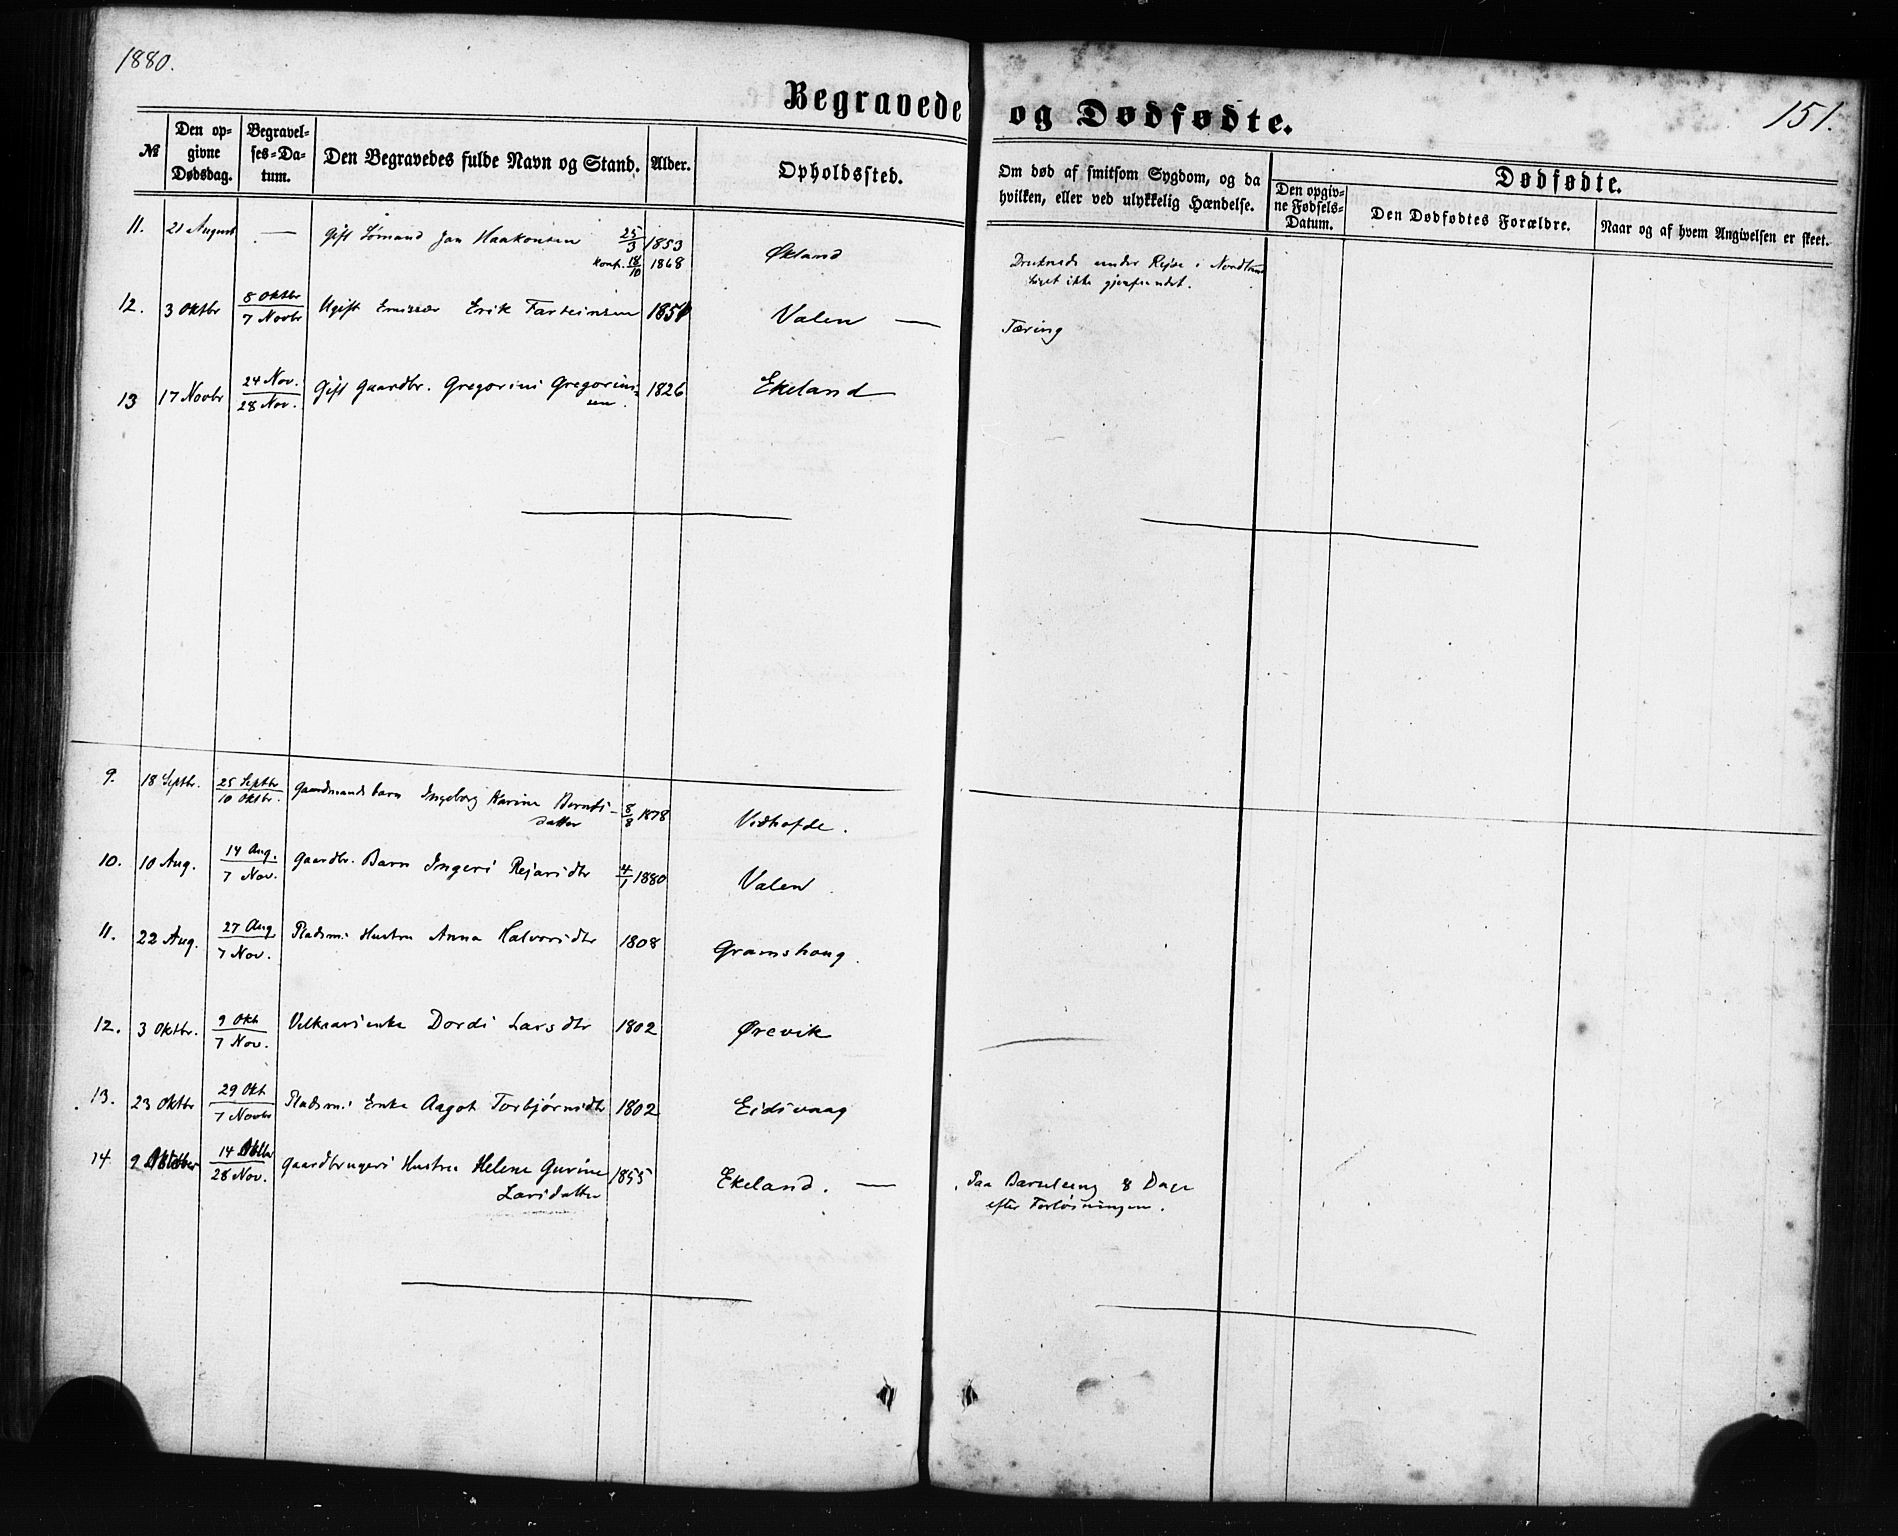 1880.
151.
Begravede og Dødfødte.
№
Den op-
givne
Dødsdag.
Begravel-
ses-Da-
tum.
Den Begravedes fulde Navn og Stand.
Alder.
Opholdssted.
Om død af smitsom Sygdom, og da
hvilken, eller ved ulykkelig Hændelse.
Dødfødte.
Den opgiv-
ne Fødsels-
Datum.
Den Dødfødtes Forældre.
Naar og af hvem Angivelsen er skeet.
11. 21 August — Gift Sømand Jan Haakonsen 25/3 1853 Økland Druknede under Rejse i Nordland
Konf. 18/10 1868 Liget ikke gjenfundet.
12. 3 Oktbr 8 Oktbr / 7 Novbr Ugift Emissær Erik Farteinsen 1851 Valen — Tæring
13 17 Novbr 24 Nov. / 28 Nov. Gift Gaardbr. Gregorius Gregorius-
sen. 1826 Ekeland
9. 18 Septbr. 25 Septbr / 10 Oktbr. Gaardmands barn Ingeborg Karine Bernts-
datter 8/8 1878 Vidhofde.
10. 10 Aug. 14 Aug. / 7 Nov. Gaardbr. Barn Ingeri Rejarsdtr 4/1 1880 Valen.
11. 22 Aug. 27 Aug / 7 Nov. Pladsm. Hustru Anna Halvorsdtr 1808 Gramshaug.
12. 3 Oktbr. 9 Okt / 7 Nov. Dordi Larsdtr 1802 Ørevik
13. 23 Oktbr 29 Okt / 7 Novbr Pladsm. Enke Aagot Torbjørnsdtr 1802 Eidsvaag
14 9 14 / 28 Nov. Gaardbrugers Hustru Helene Gurine
Larsdatter 1855 Ekeland. — Paa Barselseng 8 Dage
efter Forløsningen.